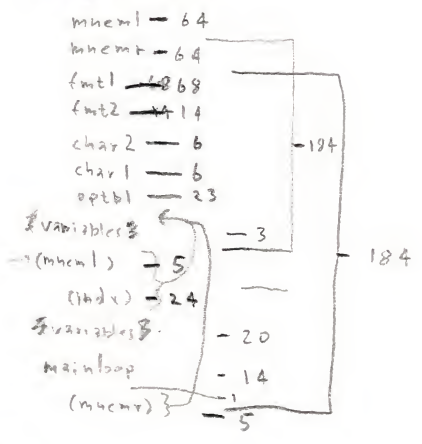 mneml — 64
mnemr — 64
fmt1 — 68 68
fmt2 — 14 14
char2 — 6
char1 — 6
optbl — 23
{variables} — 3
(mneml) — 5
(indx) — 24
{variables} — 20
mainloop — 14
— 1
(mnemr) — 5
— 184
— 184